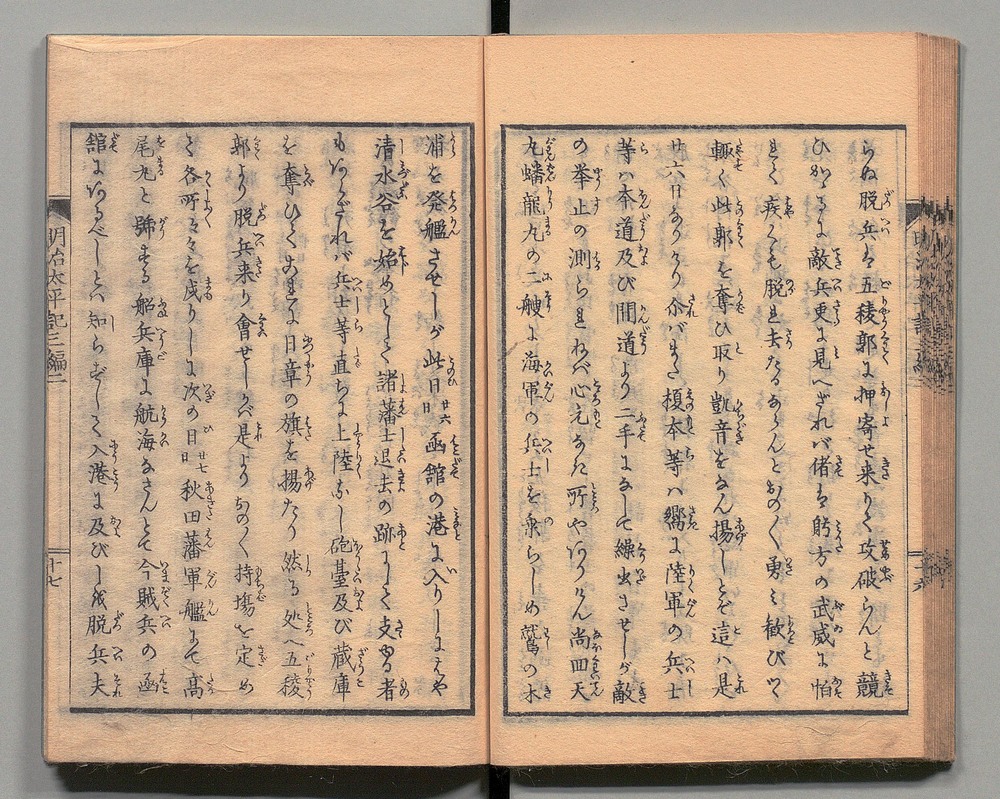 らぬ脱兵は五稜郭に押寄せ来りて攻破らんと競
ひかゝるに敵兵更に見へざれバ偖は躬方の武威に怕
れて疾くも脱れ去たるならんとおの〳〵勇み歓びつゝ
輙く此郭を奪ひ取り凱音をなん揚しとぞ這ハ是
廿六日なりけり尒バまた榎本等ハ嚮に陸軍の兵士
等ハ本道及び間道より二手になして繰出させしが敵
の挙止の測られねバ心元なき所やありけん尚回天
丸蟠龍丸の二艘に海軍の兵士を乗らしめ鷲の木
浦を発艦させしが此日廿六日函館の港に入りしにはや
清水谷を始めとして諸藩士退去の跡にして支ゆる者
もあらざれバ兵士等直ちに上陸なし砲臺及び蔵庫
を奪ひてこれに日章の旗を揚たり然る処へ五稜
郭より脱兵来り會せしかバ是よりおの〳〵持塲を定め
て各所々々を戍りしに次の日廿七日秋田藩軍艦にて高
尾丸と號する船兵庫に航海なさんとて今賊兵の函
舘にあるべしとハ知らずして入港に及びしを脱兵夫
明治太平記三編二
十七